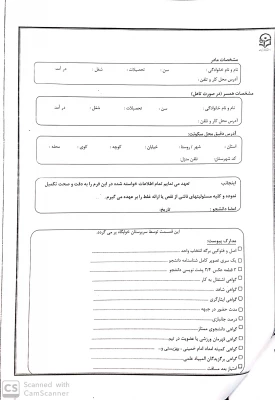 مشخصات مادر
نام و نام خانوادگی: سن: تحصیلات: شغل: در آمد
آدرس محل کار و تلفن:
مشخصات همسر (در صورت تاهل)
نام و نام خانوادگی: سن: تحصیلات: شغل: در آمد
آدرس محل کار و تلفن:
آدرس دقیق محل سکونت:
استان: شهر / روستا: خیابان: کوچه: کوی: محله:
کد شهرستان: تلفن منزل:
اینجانب تعهد می نمایم تمام اطلاعات خواسته شده در این فرم را به دقت و صحت تکمیل
نموده و کلیه مسئولیتهای ناشی از نقص یا ارائه غلط را بر عهده می گیرم.
امضا دانشجو: تاریخ:
این قسمت توسط سرپرستان خوابگاه پر می گردد.
مدارک پیوست:
اصل و فتوکپی برگه انتخاب واحد
یک سری تصویر کامل شناسنامه دانشجو
۲ قطعه عکس ۳*۴ پشت نویسی دانشجو
گواهی اشتغال به کار
گواهی شاهد
گواهی ایثارگری
مدت حضور در جبهه
درصد جانبازی
گواهی دانشجوی ممتاز
گواهی قهرمان ورزشی یا عضویت در تیم
گواهی کمیته امداد امام خمینی، بهزیستی و
گواهی برگزیدگان المپیاد علمی
امتیاز بعد مسافت
CS Scanned with
CamScanner